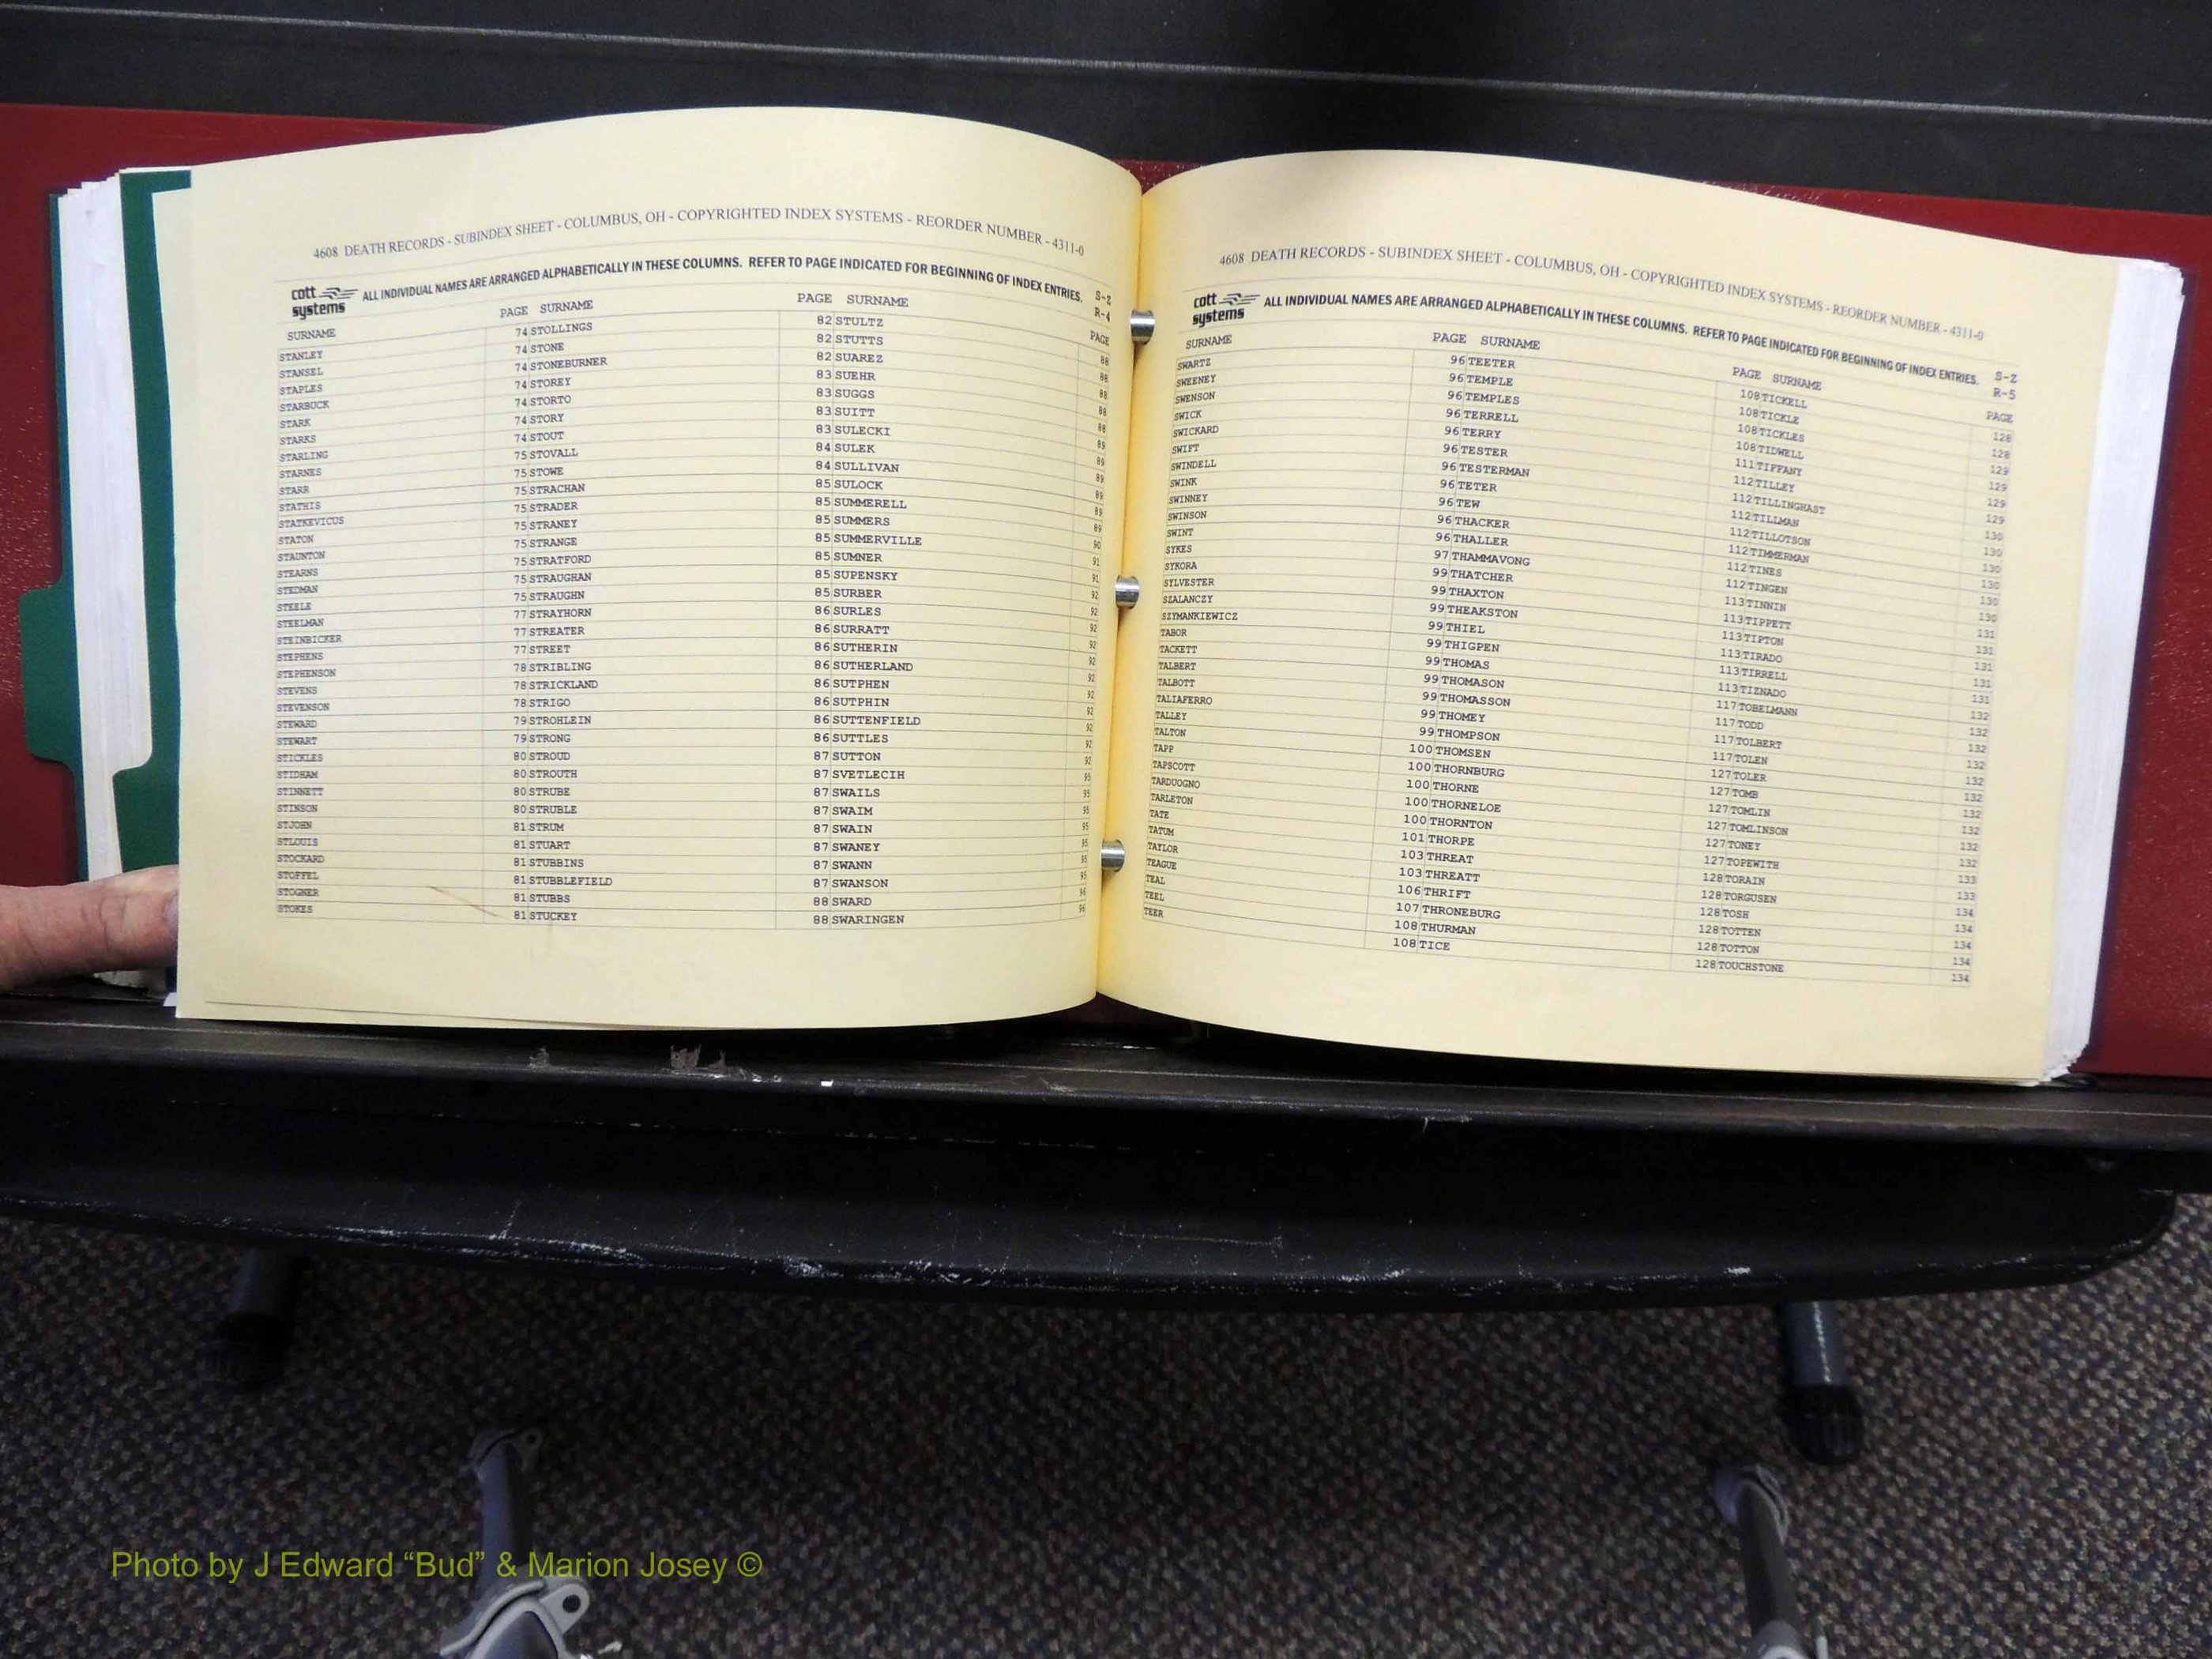 4608 DEATH RECORDS - SUBINDEX SHEET - COLUMBUS, OH - COPYRIGHTED INDEX SYSTEMS - REORDER NUMBER - 4311-0
cott systems ALL INDIVIDUAL NAMES ARE ARRANGED ALPHABETICALLY IN THESE COLUMNS. REFER TO PAGE INDICATED FOR BEGINNING OF INDEX ENTRIES. S-Z R-4
SURNAME PAGE SURNAME PAGE SURNAME PAGE
STANLEY 74 STOLLINGS 82 STULTZ 88
STANSEL 74 STONE 82 STUTTS 88
STAPLES 74 STONEBURNER 82 SUAREZ 88
STARBUCK 74 STOREY 83 SUEHR 88
STARK 74 STORTO 83 SUGGS 88
STARKS 74 STORY 83 SUITT 89
STARLING 74 STOUT 83 SULECKI 89
STARNES 75 STOVALL 84 SULEK 89
STARR 75 STOWE 84 SULLIVAN 89
STATHIS 75 STRACHAN 85 SULOCK 89
STATKEVICUS 75 STRADER 85 SUMMERELL 89
STATON 75 STRANEY 85 SUMMERS 90
STAUNTON 75 STRANGE 85 SUMMERVILLE 91
STEARNS 75 STRATFORD 85 SUMNER 91
STEDMAN 75 STRAUGHAN 85 SUPENSKY 92
STEELE 75 STRAUGHN 85 SURBER 92
STEELMAN 77 STRAYHORN 86 SURLES 92
STEINBICKER 77 STREATER 86 SURRATT 92
STEPHENS 77 STREET 86 SUTHERIN 92
STEPHENSON 78 STRIBLING 86 SUTHERLAND 92
STEVENS 78 STRICKLAND 86 SUTPHEN 92
STEVENSON 78 STRIGO 86 SUTPHIN 92
STEWARD 79 STROHLEIN 86 SUTTENFIELD 92
STEWART 79 STRONG 86 SUTTLES 92
STICKLES 80 STROUD 87 SUTTON 92
STIDHAM 80 STROUTH 87 SVETLECIH 95
STINNETT 80 STRUBE 87 SWAILS 95
STINSON 80 STRUBLE 87 SWAIM 95
STJOHN 81 STRUM 87 SWAIN 95
STLOUIS 81 STUART 87 SWANEY 95
STOCKARD 81 STUBBINS 87 SWANN 95
STOFFEL 81 STUBBLEFIELD 87 SWANSON 95
STOGNER 81 STUBBS 88 SWARD 96
STOKES 81 STUCKEY 88 SWARINGEN 96
4608 DEATH RECORDS - SUBINDEX SHEET - COLUMBUS, OH - COPYRIGHTED INDEX SYSTEMS - REORDER NUMBER - 4311-0
cott systems ALL INDIVIDUAL NAMES ARE ARRANGED ALPHABETICALLY IN THESE COLUMNS. REFER TO PAGE INDICATED FOR BEGINNING OF INDEX ENTRIES. S-Z R-5
SURNAME PAGE SURNAME PAGE SURNAME PAGE
SWARTZ 96 TEETER 108 TICKELL 128
SWEENEY 96 TEMPLE 108 TICKLE 128
SWENSON 96 TEMPLES 108 TICKLES 129
SWICK 96 TERRELL 108 TIDWELL 129
SWICKARD 96 TERRY 111 TIFFANY 129
SWIFT 96 TESTER 112 TILLEY 129
SWINDELL 96 TESTERMAN 112 TILLINGHAST 130
SWINK 96 TETER 112 TILLMAN 130
SWINNEY 96 TEW 112 TILLOTSON 130
SWINSON 96 THACKER 112 TIMMERMAN 130
SWINT 96 THALLER 112 TINES 130
SYKES 97 THAMMAVONG 112 TINGEN 130
SYKORA 99 THATCHER 113 TINNIN 131
SYLVESTER 99 THAXTON 113 TIPPETT 131
SZALANCZY 99 THEAKSTON 113 TIPTON 131
SZYMANKIEWICZ 99 THIEL 113 TIRADO 131
TABOR 99 THIGPEN 113 TIRRELL 131
TACKETT 99 THOMAS 113 TIZNADO 132
TALBERT 99 THOMASON 117 TOBELMANN 132
TALBOTT 99 THOMASSON 117 TODD 132
TALIAFERRO 99 THOMEY 117 TOLBERT 132
TALLEY 99 THOMPSON 117 TOLEN 132
TALTON 100 THOMSEN 127 TOLER 132
TAPP 100 THORNBURG 127 TOMB 132
TAPSCOTT 100 THORNE 127 TOMLIN 132
TARDUOGNO 100 THORNELOE 127 TOMLINSON 132
TARLETON 100 THORNTON 127 TONEY 132
TATE 101 THORPE 127 TOPEWITH 133
TATUM 103 THREAT 128 TORAIN 133
TAYLOR 103 THREATT 128 TORGUSEN 134
TEAGUE 106 THRIFT 128 TOSH 134
TEAL 107 THRONEBURG 128 TOTTEN 134
TEEL 108 THURMAN 128 TOTTON 134
TEER 108 TICE 128 TOUCHSTONE 134
Photo by J Edward “Bud” & Marion Josey ©